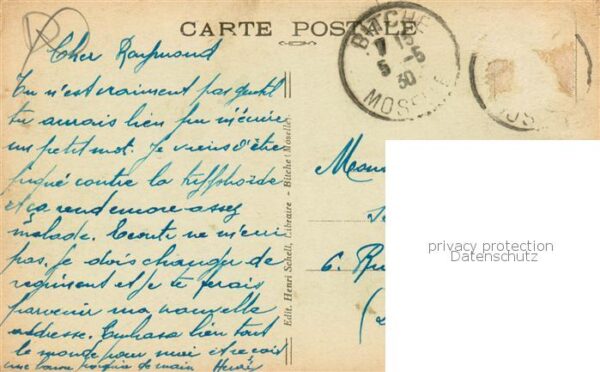 CARTE POSTALE
BITCHE
17 15
5 -5
30
MOSELLE
MOS
Cher Raymond
Tu n'est vraiment pas gentil
tu aurais bien pu m'écrire
un petit mot. Je viens d'être
piqué contre la tiffohoïde
et ça rend encore assez
malade. Ecoute ne m'écri
pas. Je dois changer de
regiment et je te ferais
parvenir ma nouvelle
adresse. Embrase bien tout
le monde pour moi et reçois
une bonne poignée de main Henri
Edit. Henri Schell, Libraire - Bitche (Moselle)
6. Ru
privacy protection
Datenschutz